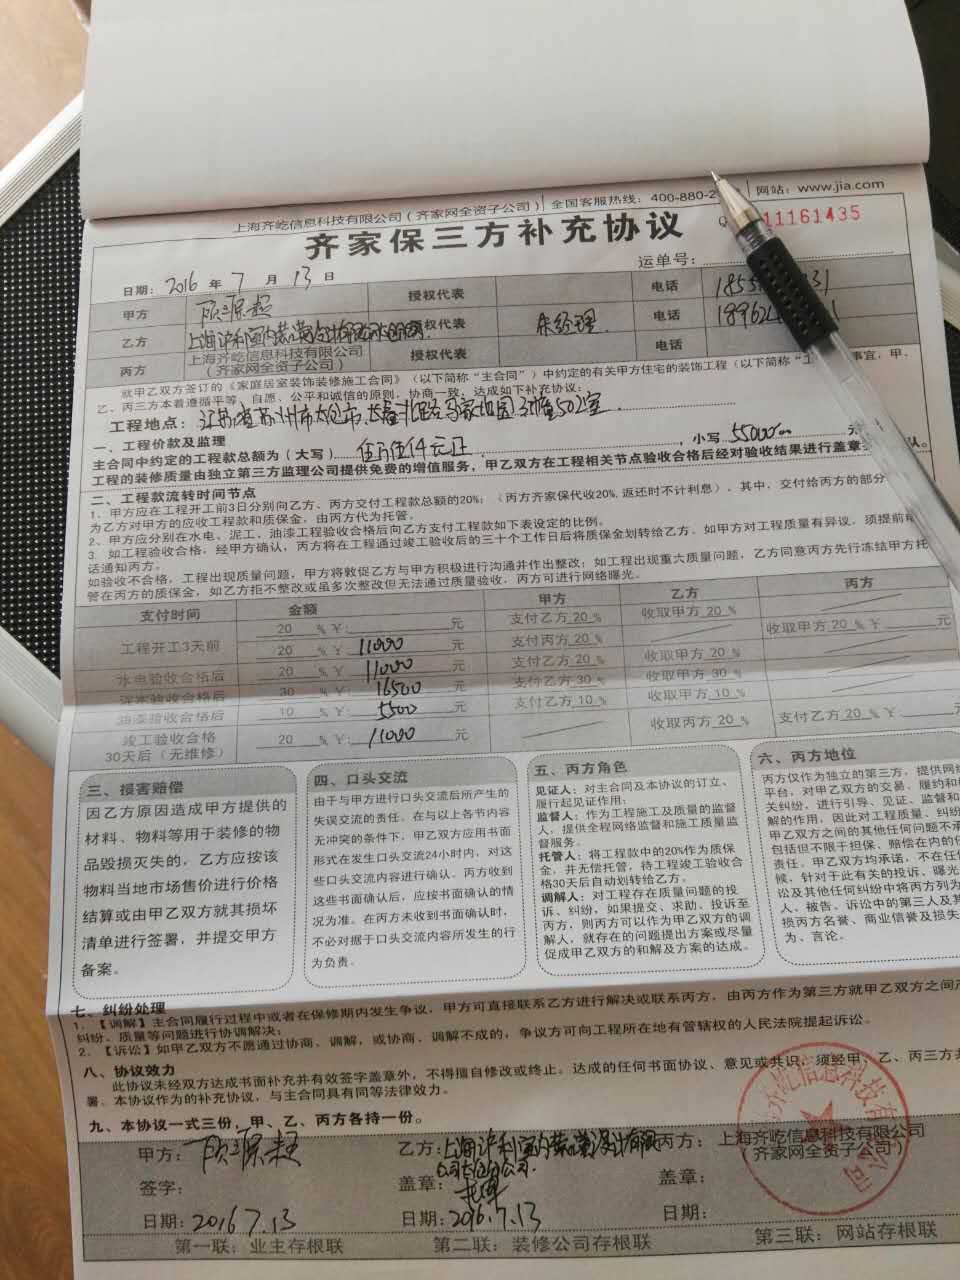 上海齐屹信息科技有限公司（齐家网全资子公司） 全国客服热线：400-880-2 网站：www.jia.com
齐家保三方补充协议
11161435
运单号：
日期：2016 年 7 月 13 日
甲方 授权代表 电话
乙方 授权代表 朱经理 电话
丙方 上海齐屹信息科技有限公司（齐家网全资子公司） 授权代表 电话
就甲乙双方签订的《家庭居室装饰装修施工合同》（以下简称“主合同”）中约定的有关甲方住宅的装饰工程（以下简称“工 事宜，甲、
乙、丙三方本着遵循平等、自愿、公平和诚信的原则，协商一致，达成如下补充协议：
工程地点：江苏省苏州市太仓市 502室
一、工程价款及监理
主合同中约定的工程款总额为（大写） 伍万伍仟元正 ，小写 55000
工程的装修质量由独立第三方监理公司提供免费的增值服务，甲乙双方在工程相关节点验收合格后经对验收结果进行盖章
二、工程款流转时间节点
1、甲方应在工程开工前3日分别向乙方、丙方交付工程款总额的20%；（丙方齐家保代收20%，返还时不计利息），其中，交付给丙方的部分
为乙方对甲方的应收工程款和质保金，由丙方代为托管。
2、甲方应分别在水电、泥工、油漆工程验收合格后向乙方支付工程款如下表设定的比例。
3、如工程验收合格，经甲方确认，丙方将在工程通过竣工验收后的三十个工作日后将质保金划转给乙方。如甲方对工程质量有异议，须提前
话通知丙方。
如验收不合格，工程出现质量问题，甲方将敦促乙方与甲方积极进行沟通并作出整改；如工程出现重大质量问题，乙方同意丙方先行冻结甲方托
管在丙方的质保金，如乙方拒不整改或虽多次整改但无法通过质量验收，丙方可进行网络曝光。
支付时间 金额 甲方 乙方 丙方
工程开工3天前 20 %￥: 元 支付乙方 20 % 收取甲方 20 %
20 %￥: 11000 元 支付丙方 20 % 收取甲方 20 %￥ 元
水电验收合格后 20 %￥: 11000 元 支付乙方 20 % 收取甲方 20 %
泥木验收合格后 30 %￥: 16500 元 支付乙方 30 % 收取甲方 30 %
油漆验收合格后 10 %￥: 5500 元 支付乙方 10 % 收取甲方 10 %
竣工验收合格
30天后（无维修） 20 %￥: 11000 元 收取丙方 20 % 支付乙方 20 %￥ 元
三、损害赔偿
因乙方原因造成甲方提供的
材料、物料等用于装修的物
品毁损灭失的，乙方应按该
物料当地市场售价进行价格
结算或由甲乙双方就其损坏
清单进行签署，并提交甲方
备案。
四、口头交流
由于与甲方进行口头交流后所产生的
失误交流的责任，在与以上各节内容
无冲突的条件下，甲乙双方应用书面
形式在发生口头交流24小时内，对这
些口头交流内容进行确认。丙方收到
这些书面确认后，应按书面确认的情
况为准。在丙方未收到书面确认时，
不必对据于口头交流内容所发生的行
为负责。
五、丙方角色
见证人：对主合同及本协议的订立、
履行起见证作用；
监督人：作为工程施工及质量的监督
人，提供全程网络监督和施工质量监
督服务。
托管人：将工程款中的20%作为质保
金，并无偿托管，待工程竣工验收合
格30天后自动划转给乙方。
调解人：对工程存在质量问题的投
诉、纠纷，如果提交、求助、投诉至
丙方，则丙方可以作为甲乙双方的调
解人，就存在的问题提出方案或尽量
促成甲乙双方的和解及方案的达成。
六、丙方地位
丙方仅作为独立的第三方，提供网络
平台，对甲乙双方的交易、履约和
关纠纷，进行引导、见证、监督和
解的作用，因此对工程质量、纠纷
甲乙双方之间的其他任何问题不承
包括但不限于担保、赔偿在内的任
责任。甲乙双方均承诺，不在任何
候，针对于此有关的投诉、曝光
讼及其他任何纠纷中将丙方列为
人、被告、诉讼中的第三人及其
损丙方名誉、商业信誉及损失
为、言论。
七、纠纷处理
1、【调解】主合同履行过程中或者在保修期内发生争议，甲方可直接联系乙方进行解决或联系丙方，由丙方作为第三方就甲乙双方之间产
纠纷、质量等问题进行协调解决；
2、【诉讼】如甲乙双方不愿通过协商、调解，或协商、调解不成的，争议方可向工程所在地有管辖权的人民法院提起诉讼。
八、协议效力
此协议未经双方达成书面补充并有效签字盖章外，不得擅自修改或终止。达成的任何书面协议、意见或共识，须经甲、乙、丙三方共
署。本协议作为的补充协议，与主合同具有同等法律效力。
九、本协议一式三份，甲、乙、丙方各持一份。
甲方： 乙方： 丙方：上海齐屹信息科技有限公司
（齐家网全资子公司）
签字： 盖章： 盖章：
日期：2016 7.13 日期：2016.7.13 日期：
第一联：业主存根联 第二联：装修公司存根联 第三联：网站存根联